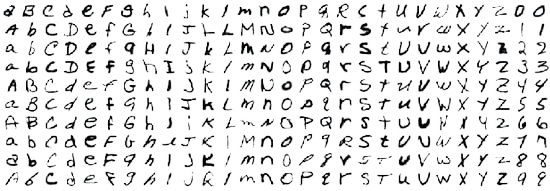 a B C d e F g h i j k l m n o P q R C t u U V w X Y Z 0 0
A b C D e f G h I J L L M N O P Q r S t u r w X Y Z 1 1
a b C D e f g H I J k L m N O P q r s t U V w X Y Z 2 2
a b C D E f g h I j K l m N O P Q r S T U V W X Y Z 3 3
A B C d e F G h i J K l m n o P q r S t u V w X Y Z 4 4
a B C d e F g h I J h L m n o p q r s t u V w X Y Z 5 5
A B C d e F G h i J K L m n O P Q r S t U U w x Y z 6 6
a b C d e F G h J K l M n O P q R S t U V W X Y Z 7 7
a b C d e F g h i J K l m n o p q r s T U V W X Y Z 8 8
a B C d e f g h i J k l m n o P q r S t u V w X Y Z 9 9